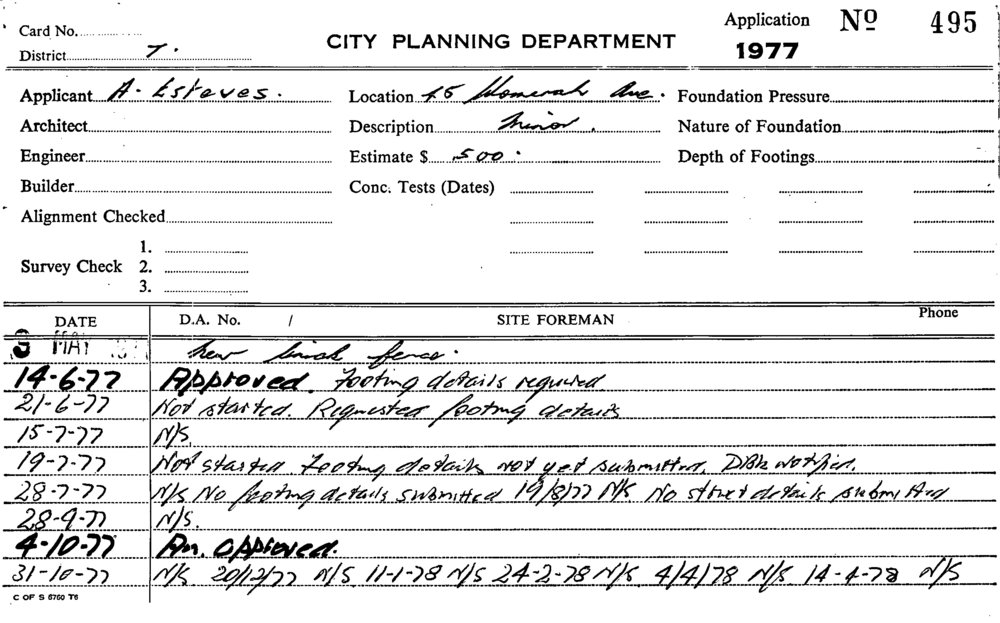 Card No.
District T.
CITY PLANNING DEPARTMENT
Application Nº 495
1977
Applicant A. Esteves.
Location 45 Womerah Ave.
Foundation Pressure
Architect
Description Minor.
Nature of Foundation
Engineer
Estimate $ 500.
Depth of Footings
Builder
Conc. Tests (Dates)
Alignment Checked
Survey Check 1.
2.
3.
DATE D.A. No. / SITE FOREMAN Phone
3 MAY New brick fence.
14-6-77 Approved. Footing details required
21-6-77 Not started. Requested footing details
15-7-77 N/S.
19-7-77 Not started Footing details not yet submitted. notified.
28-7-77 N/S No footing details submitted 19/8/77 N/S No struct details submitted
28-9-77 N/S.
4-10-77 Am. approved.
31-10-77 N/S 20/12/77 N/S 11-1-78 N/S 24-2-78 N/S 4/4/78 N/S 14-4-78 N/S
C OF S 6760 T6